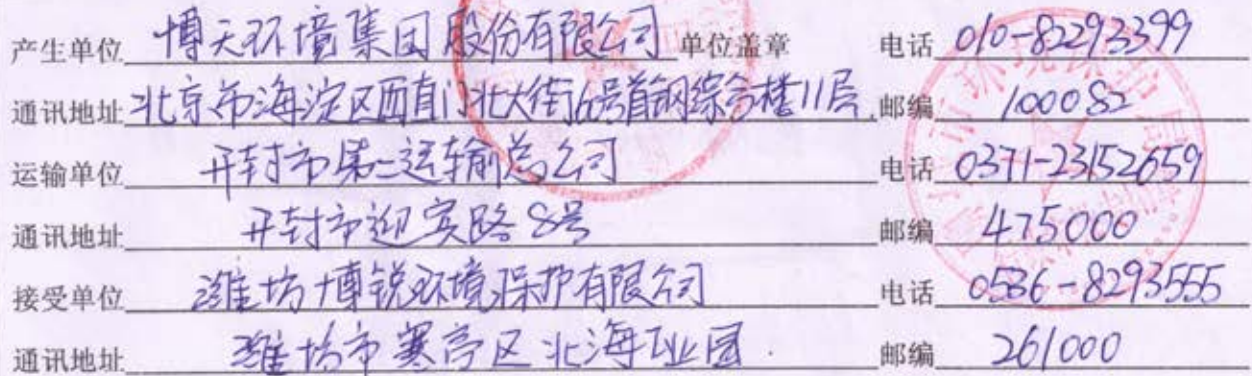 产生单位 博天环境集团股份有限公司 单位盖章 电话 010-82293399
通讯地址 北京市海淀区西直门北大街60号首钢综合楼11层 邮编 100082
运输单位 开封市第二运输总公司 电话 0371-23152659
通讯地址 开封市迎宾路8号 邮编 475000
接受单位 潍坊博锐环境保护有限公司 电话 0536-8293555
通讯地址 潍坊市寒亭区北海工业园 邮编 261000